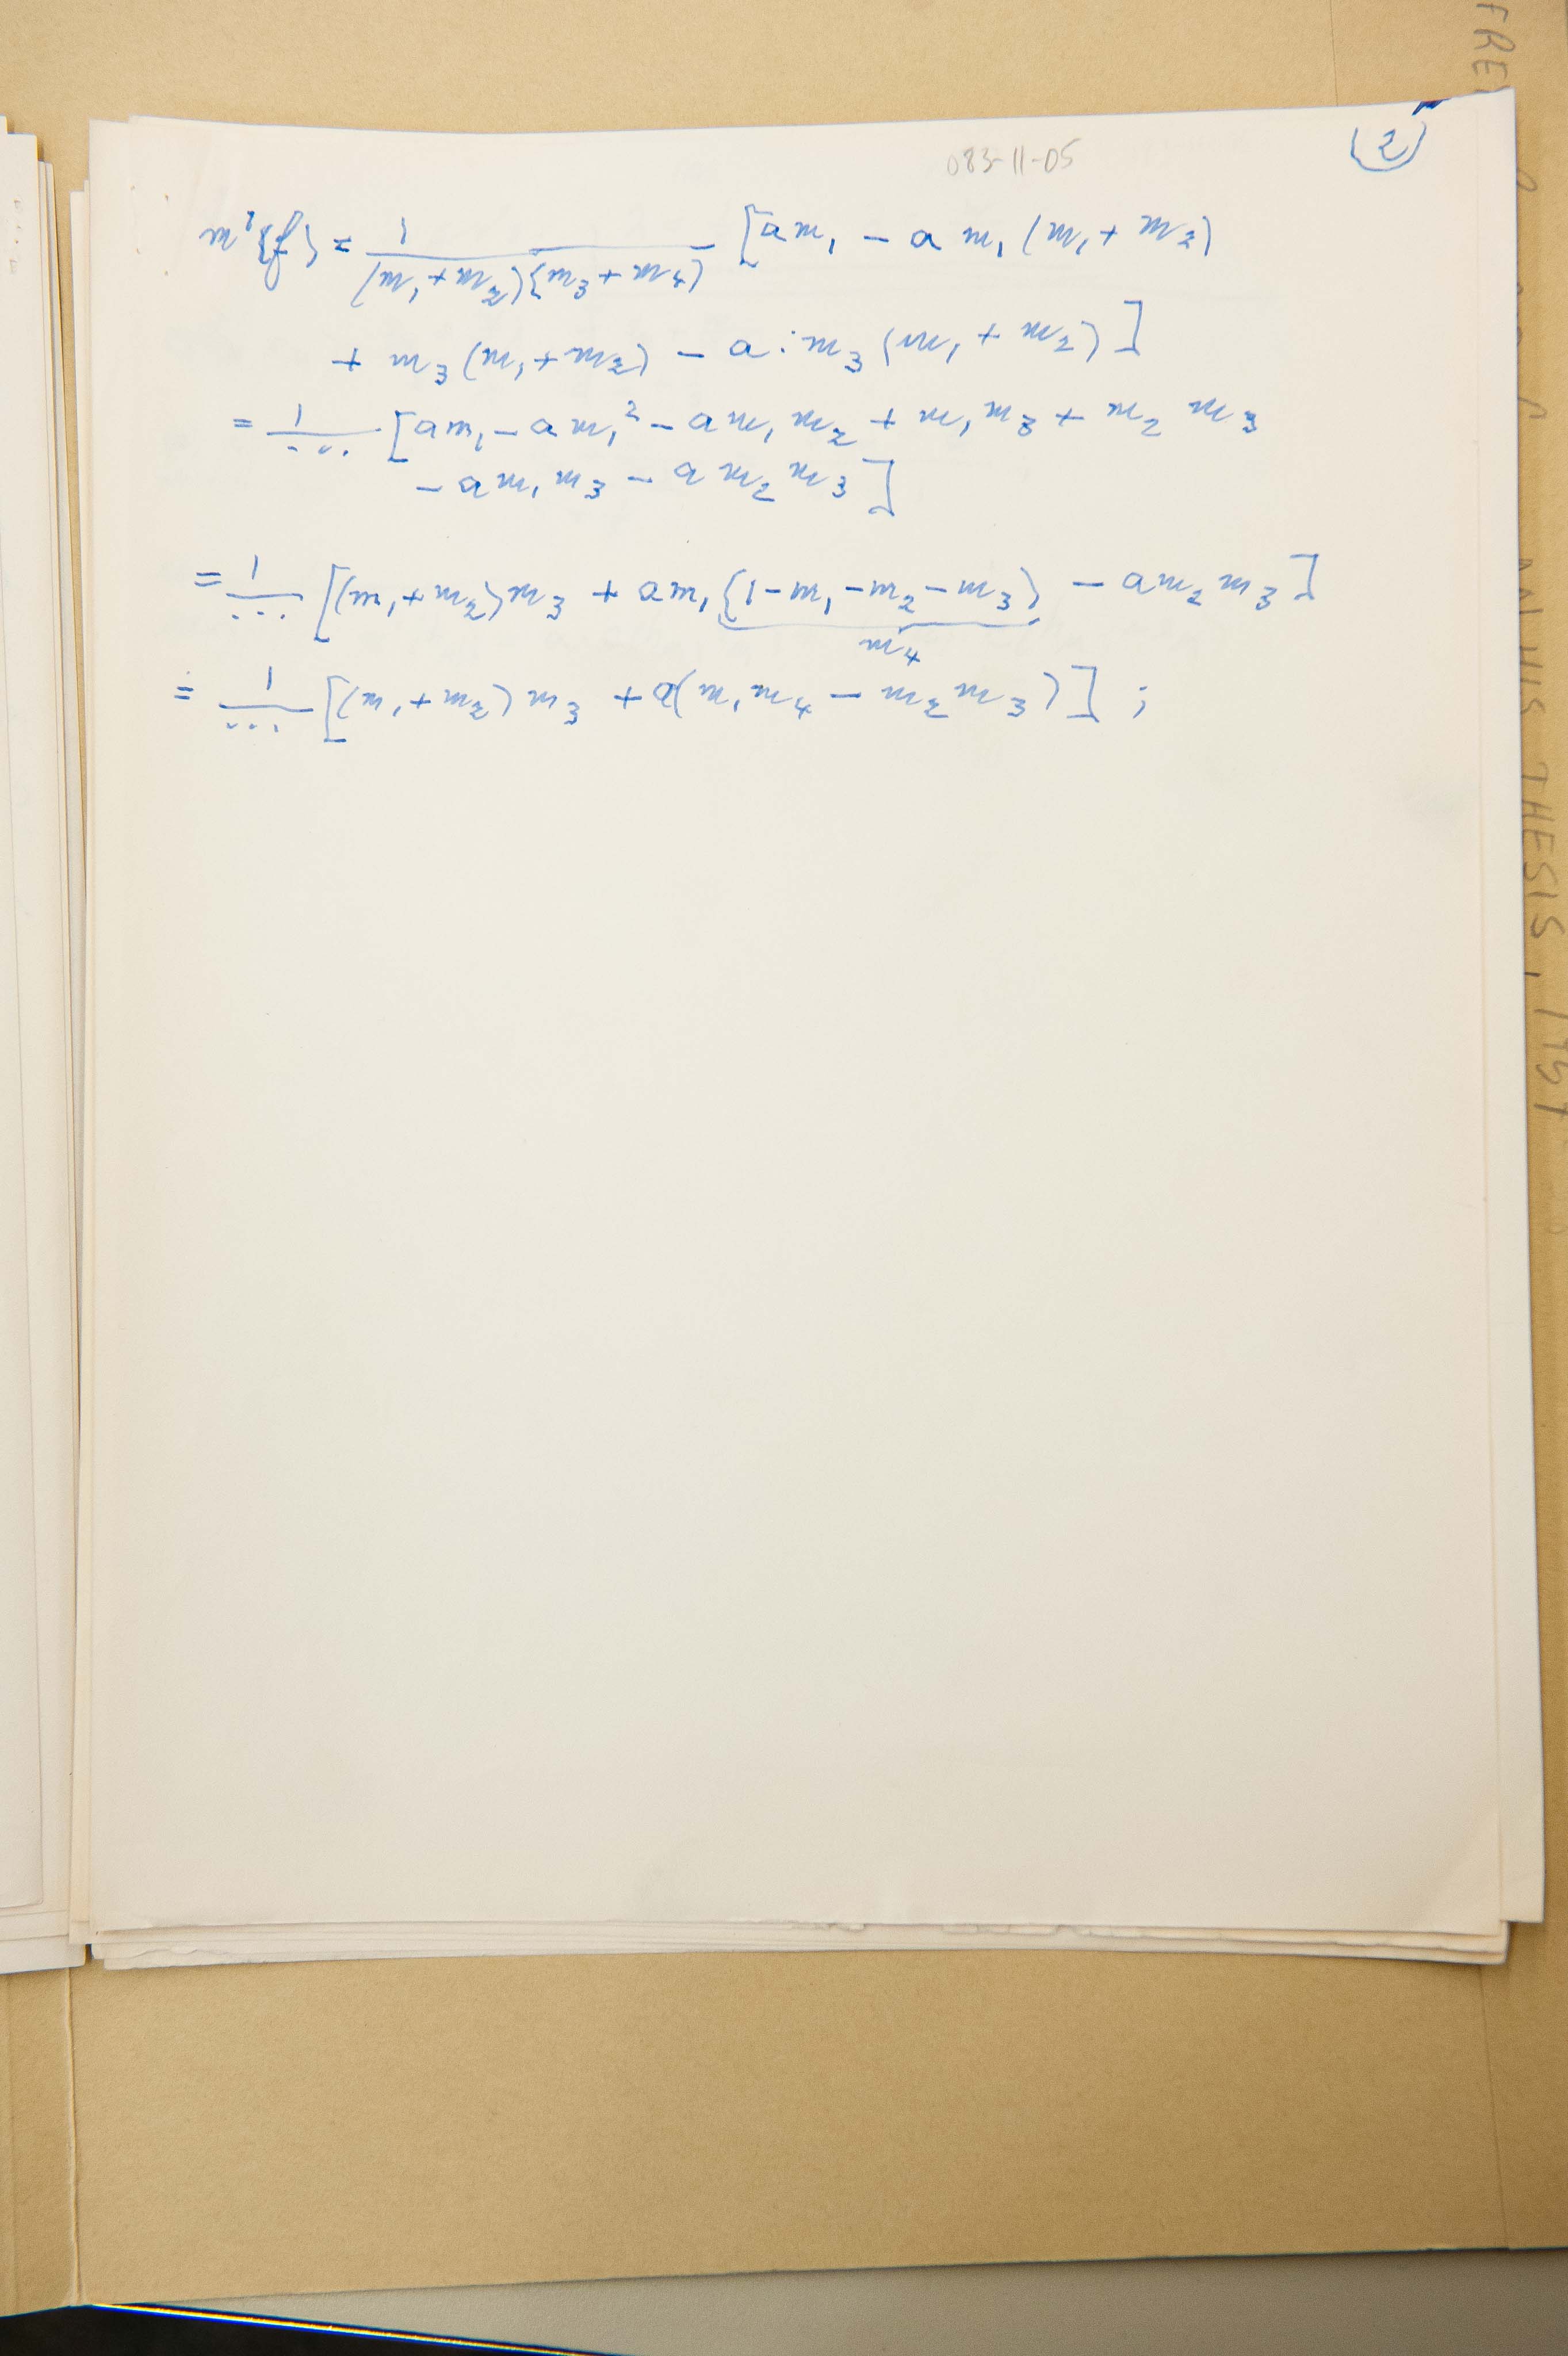 083-11-05
(2)
m'{f} = 1/((m₁+m₂)(m₃+m₄)) [am₁ - am₁(m₁+m₂)
+ m₃(m₁+m₂) - a·m₃(m₁+m₂)]
= 1/... [am₁ - am₁² - am₁m₂ + m₁m₃ + m₂m₃
- am₁m₃ - am₂m₃]
= 1/... [(m₁+m₂)m₃ + am₁(1-m₁-m₂-m₃) - am₂m₃]
m₄
= 1/... [(m₁+m₂)m₃ + a(m₁m₄ - m₂m₃)];
FRE
HIS THESIS, 195